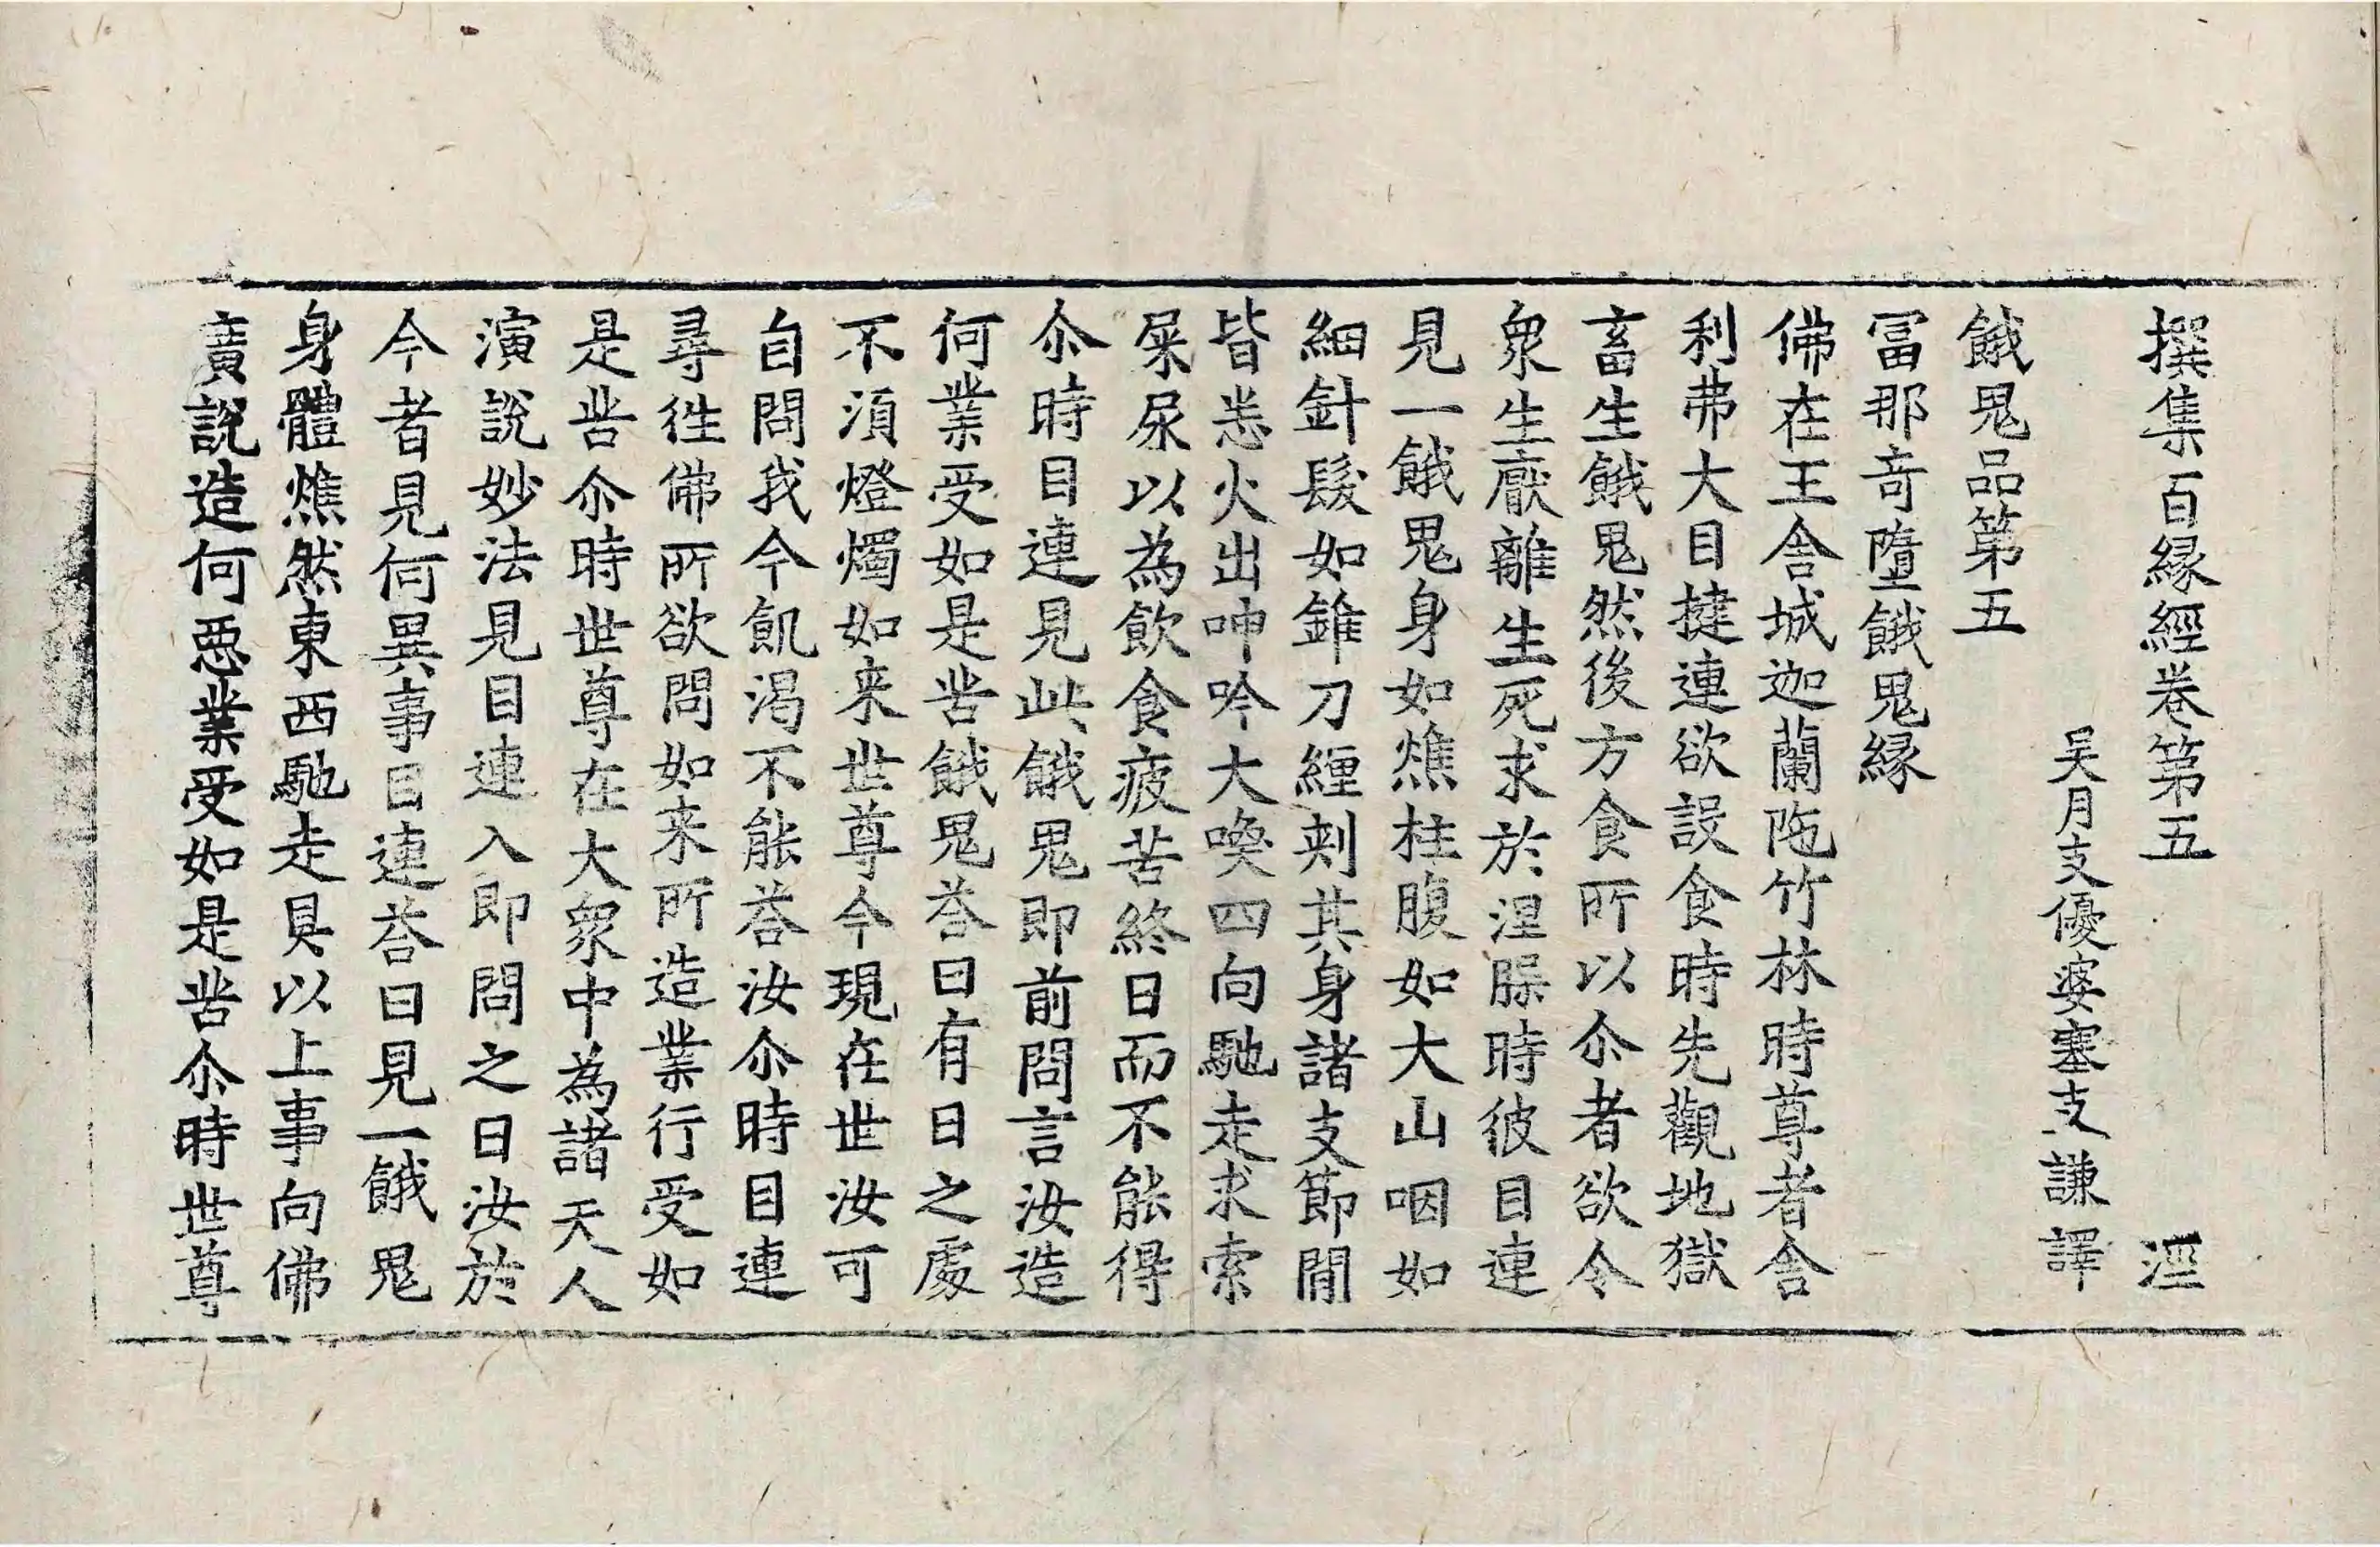 撰集百縁經卷第五 涇
吴月支優婆塞支謙譯
餓鬼品第五
冨那奇墮餓鬼縁
佛在王舎城迦蘭陁竹林時尊者舎
利弗大目揵連欲設食時先觀地獄
畜生餓鬼然後方食所以尒者欲令
衆生厭離生死求於涅槃時彼目連
見一餓鬼身如燋柱腹如大山咽如
細針髮如錐刀纏刾其身諸支節間
皆悉火出呻吟大喚四向馳走求索
屎尿以為飲食疲苦終日而不能得
尒時目連見此餓鬼即前問言汝造
何業受如是苦餓鬼荅曰有日之處
不湏燈燭如来世尊今現在世汝可
自問我今飢渴不能荅汝尒時目連
尋徃佛所欲問如来所造業行受如
是苦尒時世尊在大衆中為諸天人
演說妙法見目連入即問之曰汝於
今者見何異事目連荅曰見一餓鬼
身體燋然東西馳走具以上事向佛
廣說造何惡業受如是苦尒時世尊